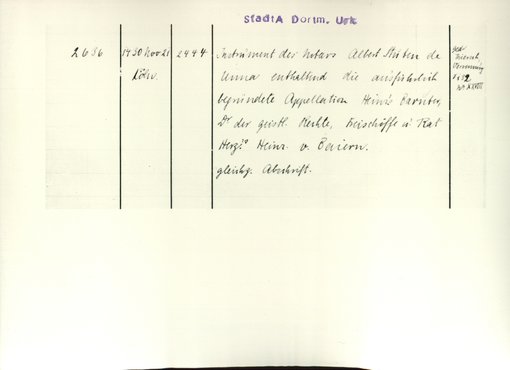 StadtA Dortm. Urk
2686 1430 Nov 21 2444 Instrument des Notars Albert Stuten de
Köln. Unna enthaltend die ausführlich
begründete Appellation Heinr's
Dr der geistl. Rechte, Freischöffe u. Rat
Herzgs Heinr. v. Baiern.
gleichz. Abschrift.